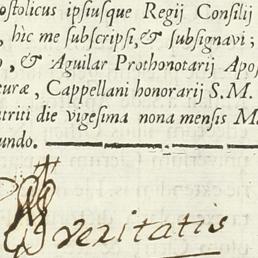 ostolicus ipsiusque Regij Consilij
, hic me subscripsi, & subsignavi;
, & Aguilar Prothonotarij Apos
euræ, Cappellani honorarij S. M.
utriti die vigesima nona mensis M
undo.
veritatis